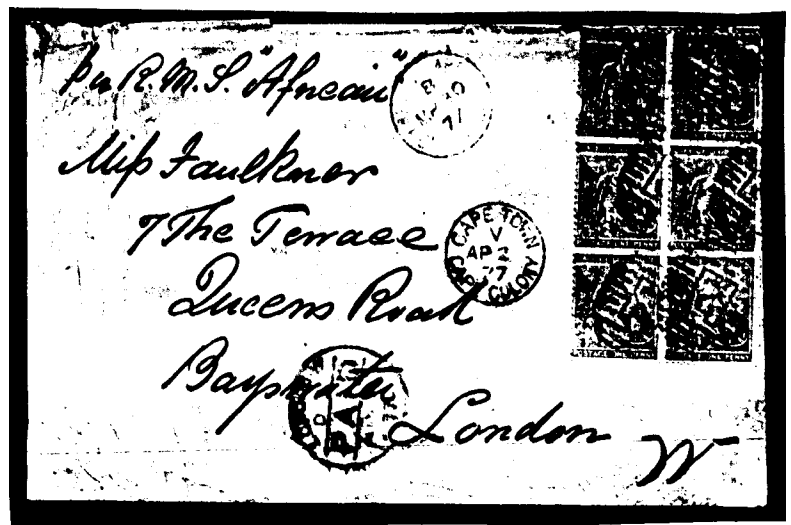 per R.M.S. "African"
Miss Faulkner
7 The Terrace
Queens Road
Bayswater
London
W
CAPE TOWN
V
AP 2
77
CAPE COLONY
PAID
POSTAGE ONE PENNY